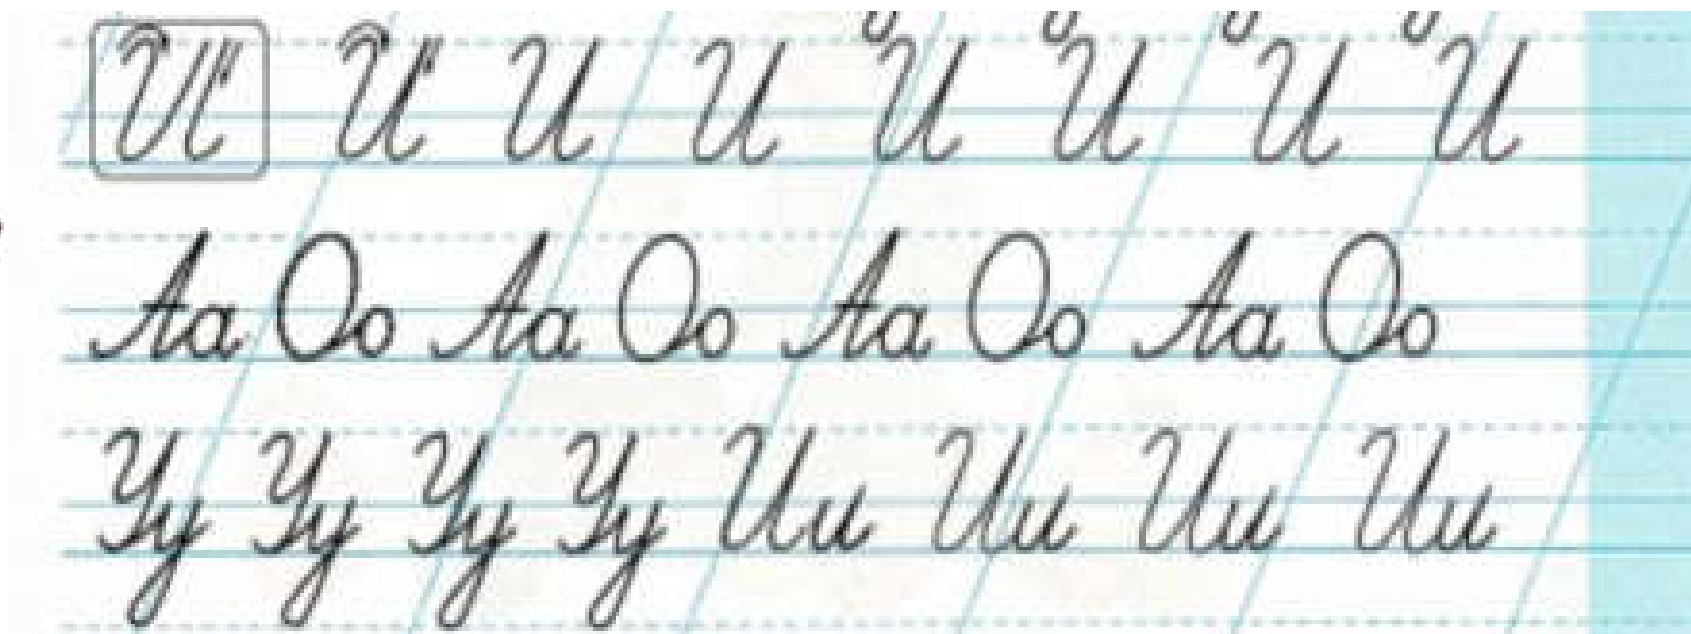 И И И И И И И И
Аа Оо Аа Оо Аа Оо Аа Оо
Уу Уу Уу Уу Ии Ии Ии Ии